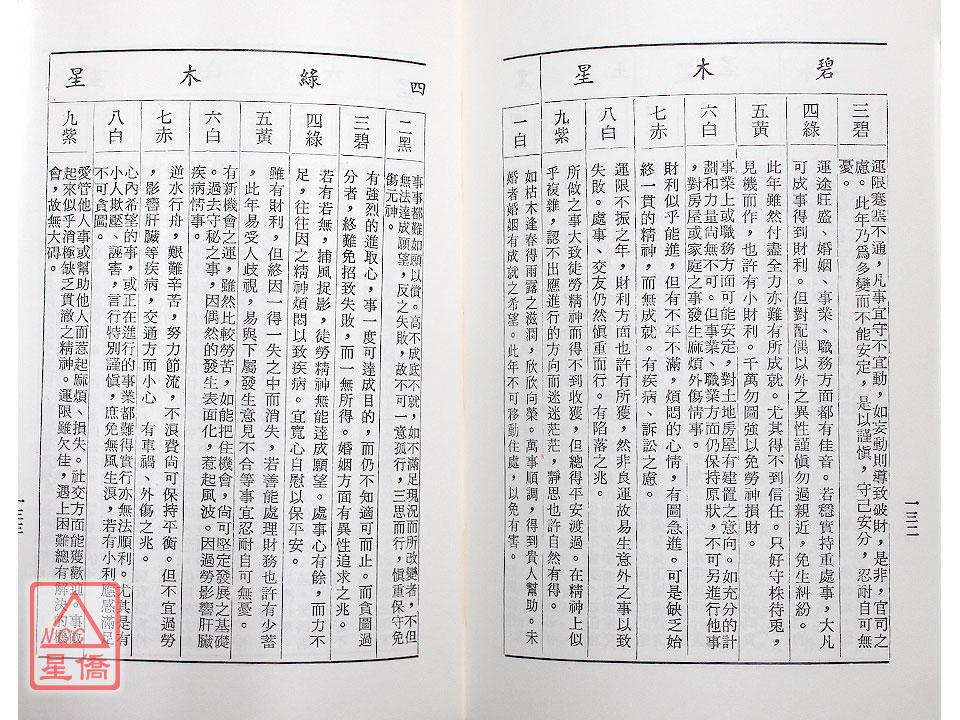 碧木星
三碧
運限蹇塞不通，凡事宜守不宜動，如妄動則導致破財，是非，官司之
慮。此年乃爲多變而不能安定，是以謹愼，守己安分，忍耐自可無
憂。
四綠
運途旺盛、婚姻、事業、職務方面都有佳音。若穩實持重處事，大凡
可成事得到財利。但對配偶以外之異性謹愼勿過親近，免生糾紛。
五黃
此年雖然付盡全力亦難有所成就。尤其得不到信任。只好守株待兎，
見機而作，也許有小財利。千萬勿圖強以免勞神損財。
六白
事業上或職務方面可能安定，對土地房屋有建置之意向。如充分的計
劃和力量尚無不可。但事業、職業方面仍保持原狀，不可另進行他事
，對房屋或家庭之事發生麻煩外傷情事。
七赤
財利似乎能進，但有不平不滿，煩悶的心情，有圖急進。可是缺乏始
終一貫的精神，而無成就。有疾病、訴訟之慮。
八白
運限不振之年，財利方面也許有所獲，然非良運故易生意外之事以致
失敗。處事、交友仍然愼重而行。有陷落之兆。
九紫
所做之事大致徒勞精神而得不到收獲，但總得平安渡過。在精神上似
乎複雜，認不出應進行的方向而迷迷茫茫，靜思也許自然有得。
一白
如枯木逢春得雨露之滋潤，欣欣向榮。萬事順調，得到貴人幫助。未
婚者婚姻有成就之希望。此年不可移動住處，以免有害。
一三二
四綠木星
二黑
事事都難如願以償。高不成底不就，如不滿足現況而所改變者，不但
無法達成願望，反之失敗，故不可一意孤行，三思而行，愼重保守免
傷元神。
三碧
有強烈的進取心，事一度可達成目的，而仍不知適可而止。而貪圖過
分者，終難免招致失敗，而一無所得。婚姻方面有異性追求之兆。
四綠
若有若無，捕風捉影，徒勞精神無能達成願望。處事心有餘，而力不
足，往往因之精神煩悶以致疾病。宜寬心自慰以保平安。
五黃
雖有財利，但終因一得一失之中而消失，若善能處理財務也許有少蓄
，此年易受人歧視，易與下屬發生意見不合等事宜忍耐自可無憂。
六白
有新機會之運，雖然比較勞苦，如能把住機會，尚可堅定發展之基礎
。過去守秘之事，因偶然的發生表面化，惹起風波。因過勞影響肝臟
疾病情事。
七赤
逆水行舟，艱難辛苦，努力節流，不浪費尚可保持平衡。但不宜過勞
，影響肝臟等疾病，交通方面小心，有車禍、外傷之兆。
八白
心內希望的事，或正在進行的事業都難得實行亦無法順利。尤其是有
小人欺壓、誣害，言行特別謹愼，庶免無風生浪，若有小利應感滿足
不可貪圖。
九紫
愛管他人事或幫助他人而惹起麻煩、損失。社交方面能獲歡迎。事
起來似乎消極缺乏貫澈之精神。運限雖欠佳，遇上困難總有解決的
會，故無大碍。
一三三
NCC
星僑